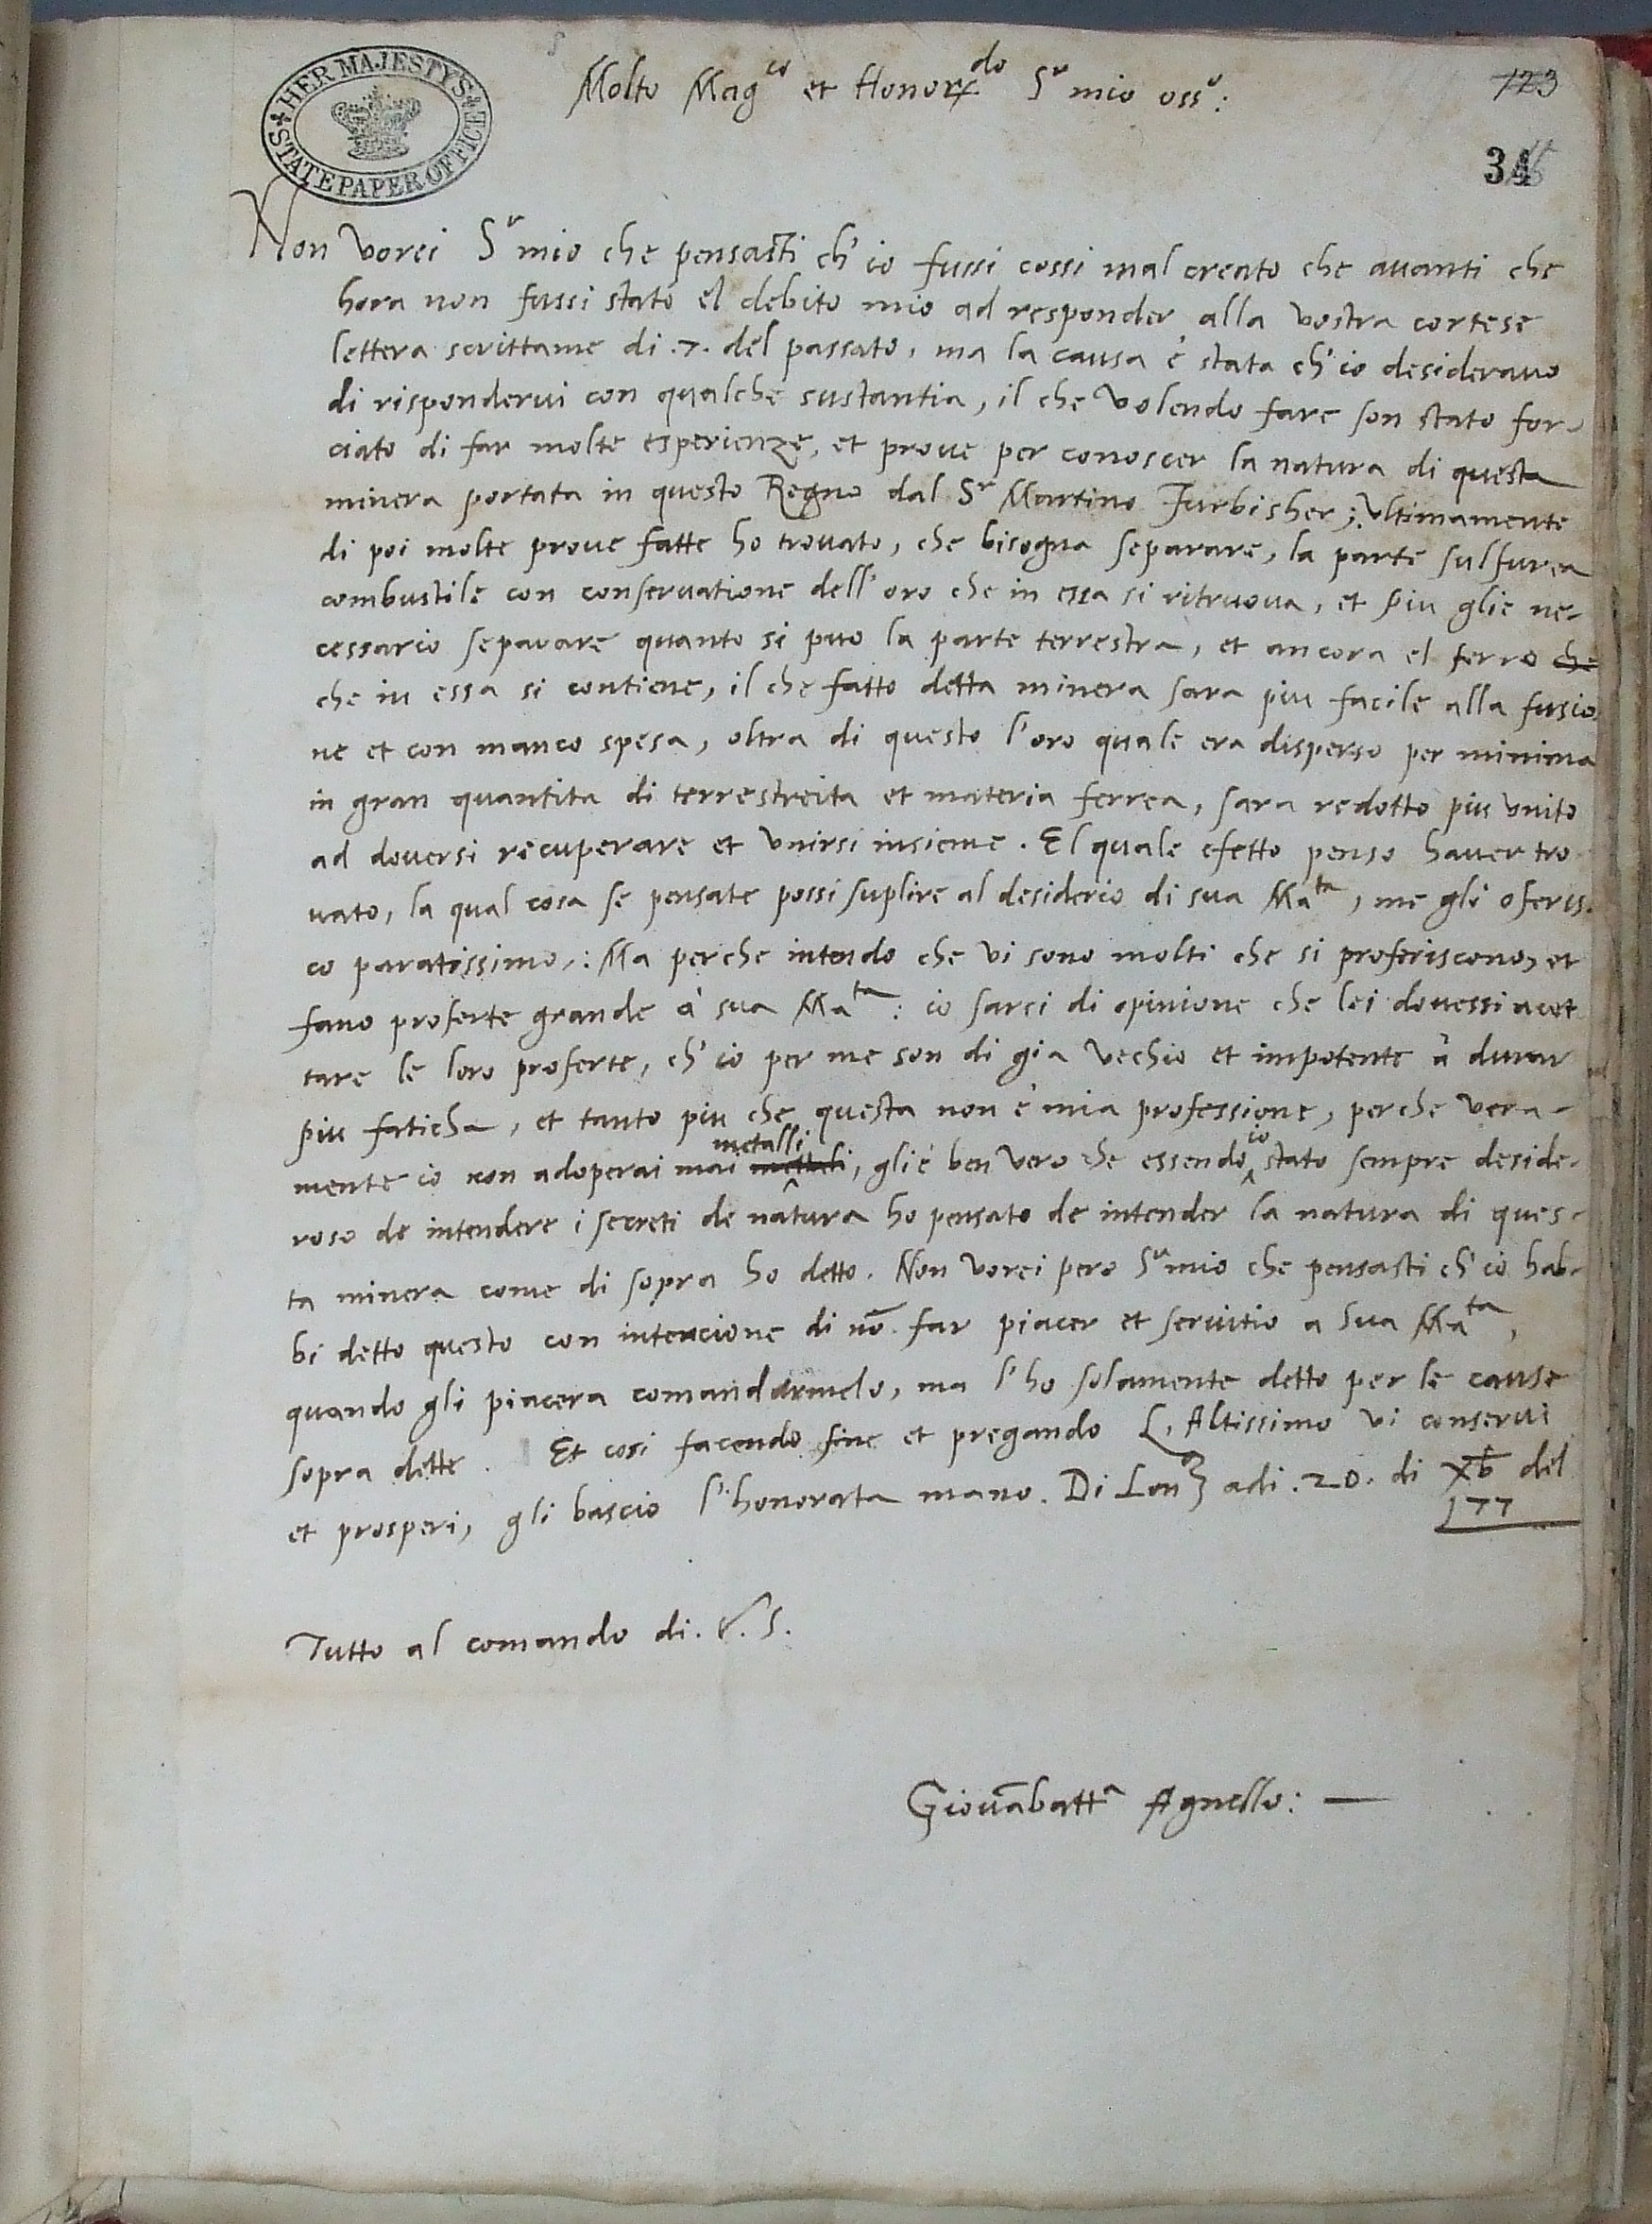 HER MAJESTYS STATE PAPER OFFICE
Molto Mag^co et Honor^do S^r mio oss^o:
123
34
Non vorei S^r mio che pensasti ch'io fussi cossi mal creato che avanti che
hora non fussi stato el debito mio ad responder alla vostra cortese
lettera scrittame di .7. del passato, ma la causa è stata ch'io desideravo
di rispondervi con qualche sustantia, il che volendo fare son stato for-
ciato di far molte esperienze, et prove per conoscer la natura di questa
minera portata in questo Regno dal S^r Martino Furbisher; ultimamente
di poi molte prove fatte ho trovato, che bisogna separare, la parte sulfurea
combustile con conservatione dell'oro che in essa si ritruova, et piu glie ne-
cessario separare quanto si puo la parte terrestra, et ancora el ferro che
che in essa si contiene, il che fatto detta minera sara piu facile alla fusio
ne et con manco spesa, oltra di questo l'oro quale era disperso per minima
in gran quantita di terrestreita et materia ferrea, sara redotto piu unito
ad doversi recuperare et unirsi insieme. El quale efetto penso haver tro
vato, la qual cosa se pensate possi suplire al desiderio di sua Ma^ta, me gli oferis-
co paratissimo,: Ma perche intendo che vi sono molti che si proferiscono, et
fano proferte grande à sua Ma^ta: io sarei di opinione che lei dovessi acet
tare le loro proferte, ch'io per me son di gia vechio et impotente à durar
piu faticha, et tanto piu che questa non è mia professione, perche vera-
metalli io
mente io non adoperai mai, gli è ben vero che essendo stato sempre deside-
roso de intendere i secreti de natura ho pensato de intender la natura di ques-
ta minera come di sopra ho detto. Non vorei pero S^r mio che pensasti ch'io hab-
bi detto questo con intencione di nō far piacer et servitio a Sua Ma^ta,
quando gli piacera comandarmelo, ma l'ho solamente detto per le cause
sopra dette. Et cosi facendo fine et pregando L'Altissimo vi conservi
et prosperi, gli bascio l'honorata mano. Di Lon^a adi .20. di Xb del
177
Tutto al comando di. V. S.
Giovābatt^a Agnello:—